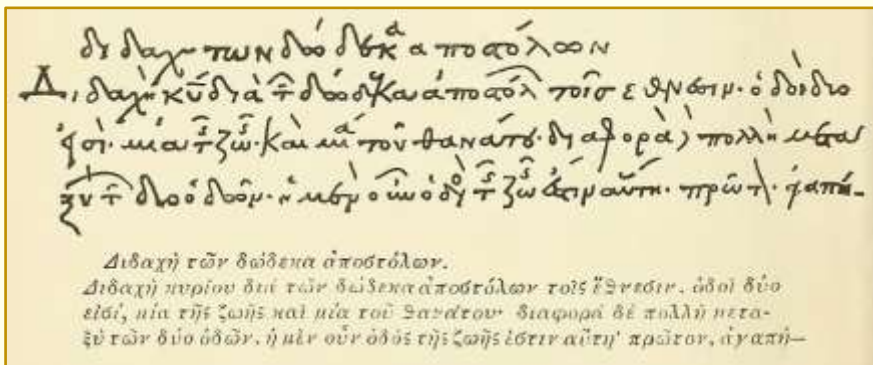 διδαχὴ τῶν δώδεκα ἀποστόλων
Διδαχὴ κῦ διὰ τ δώδεκα ἀποστόλ τοῖσ ἔθνεσιν· ὁδοὶ δύο
εἰσί· μία τ ζω καὶ μία τοῦ θανάτου· διαφορὰ δὲ πολλὴ μετα
ξὺ τ δύο ὁδῶν· ἡ μὲν οὖν ὁδὸς τ ζω ἐστιν αὕτη· πρῶτον· ἀγαπή–
Διδαχὴ τῶν δώδεκα ἀποστόλων.
Διδαχὴ κυρίου διὰ τῶν δώδεκα ἀποστόλων τοῖς ἔθνεσιν. ὁδοὶ δύο
εἰσί, μία τῆς ζωῆς καὶ μία τοῦ θανάτου· διαφορὰ δὲ πολλὴ μετα-
ξὺ τῶν δύο ὁδῶν. ἡ μὲν οὖν ὁδὸς τῆς ζωῆς ἐστιν αὕτη· πρῶτον, ἀγαπή–